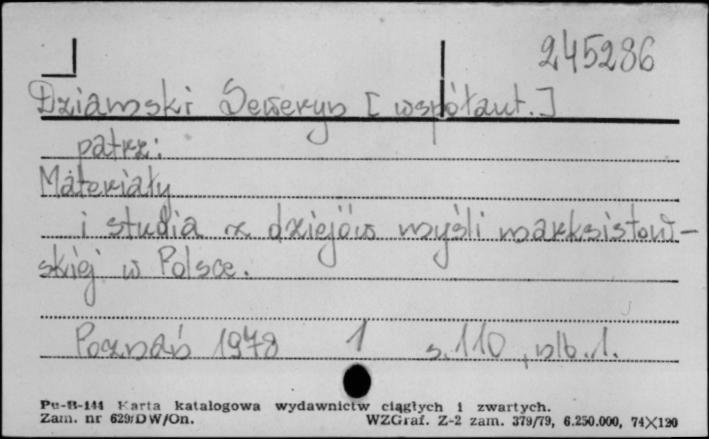 245286
Dziamski Seweryn [współaut.]
patrz:
Materiały
i studia z dziejów myśli marksistow-
skiej w Polsce.
Poznań 1978 1 s. 110, nlb. 1.
Pu-B-144 Karta katalogowa wydawnictw ciągłych i zwartych.
Zam. nr 629/DW/On. WZGraf. Z-2 zam. 379/79, 6.250.000, 74X120